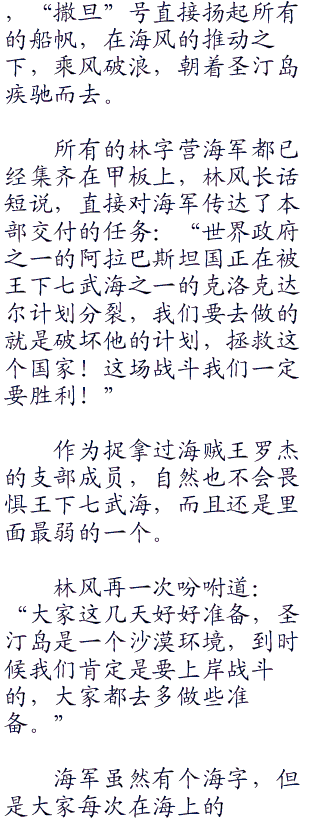 ，“撒旦”号直接扬起所有
的船帆，在海风的推动之
下，乘风破浪，朝着圣汀岛
疾驰而去。
所有的林字营海军都已
经集齐在甲板上，林风长话
短说，直接对海军传达了本
部交付的任务：“世界政府
之一的阿拉巴斯坦国正在被
王下七武海之一的克洛克达
尔计划分裂，我们要去做的
就是破坏他的计划，拯救这
个国家！这场战斗我们一定
要胜利！”
作为捉拿过海贼王罗杰
的支部成员，自然也不会畏
惧王下七武海，而且还是里
面最弱的一个。
林风再一次吩咐道：
“大家这几天好好准备，圣
汀岛是一个沙漠环境，到时
候我们肯定是要上岸战斗
的，大家都去多做些准
备。”
海军虽然有个海字，但
是大家每次在海上的